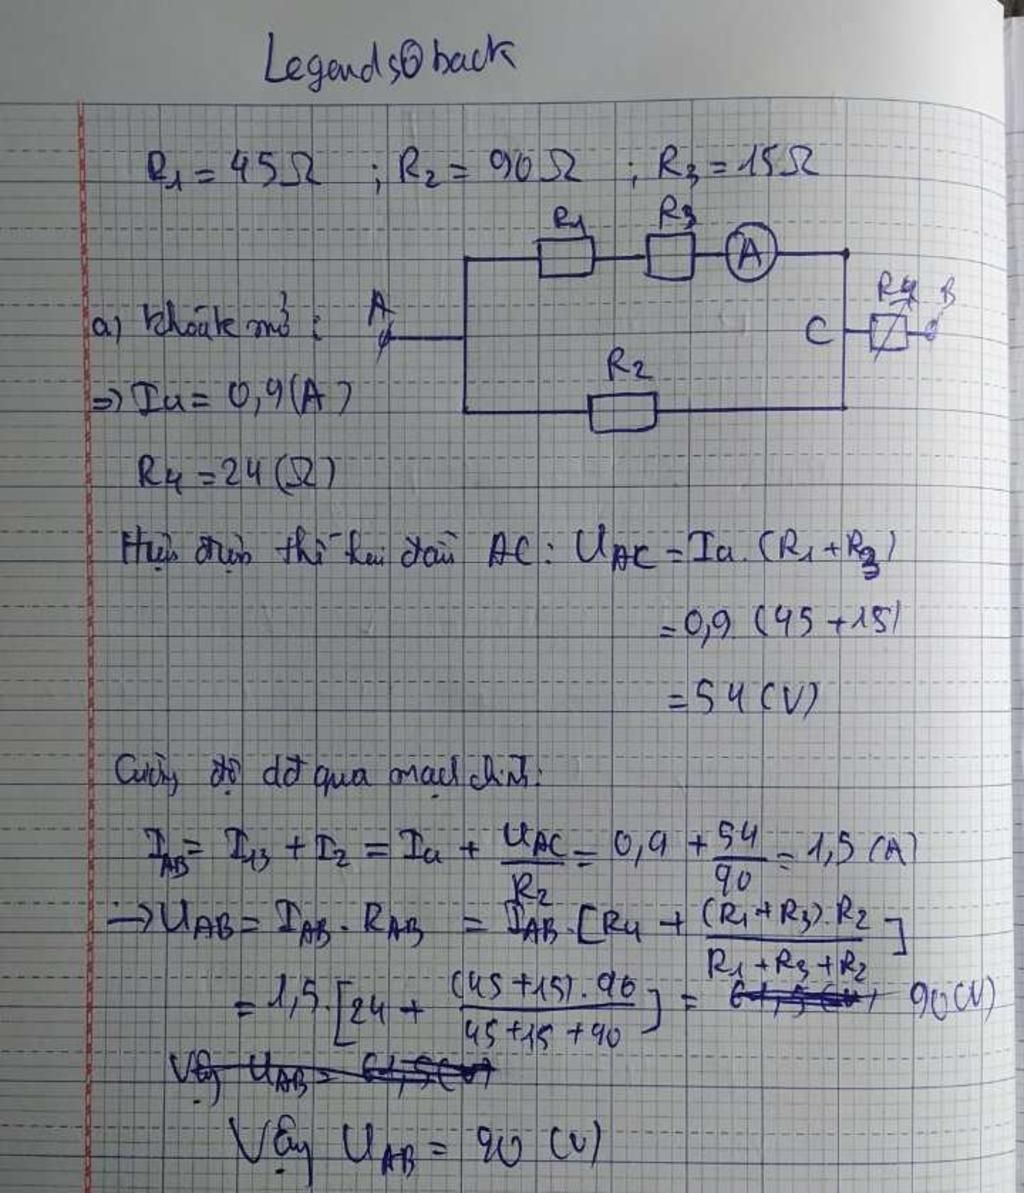 Legends@back
R1 = 45Ω ; R2 = 90Ω ; R3 = 15Ω
R1 R3
A
A
R4 B
C
R2
a) khoá k mở :
=> Ia = 0,9(A)
R4 = 24(Ω)
Hiệu điện thế hai đầu AC : UAC = Ia . (R1 + R3)
= 0,9 (45 + 15)
= 54 (V)
Cường độ dđ qua mạch chính:
IAB = I13 + I2 = Ia + UAC/R2 = 0,9 + 54/90 = 1,5 (A)
-> UAB = IAB . RAB = IAB . [R4 + (R1 + R3) . R2 / R1 + R3 + R2]
= 1,5 . [24 + (45 + 15) . 90 / 45 + 15 + 90] = 61,5 (V) 90(V)
Vậy UAB = 61,5(V)
Vậy UAB = 90 (V)